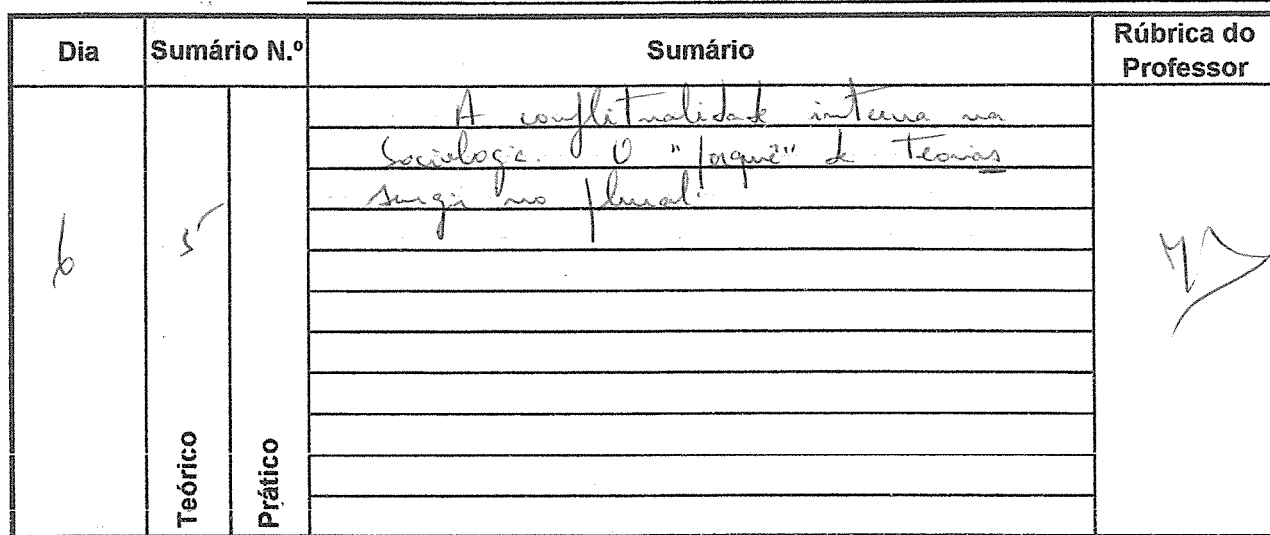 Dia Sumário N.º Sumário Rúbrica do Professor
A conflitualidade interna na
Sociologia. O "porquê" de Teorias
surgir no plural.
6 5
Teórico Prático